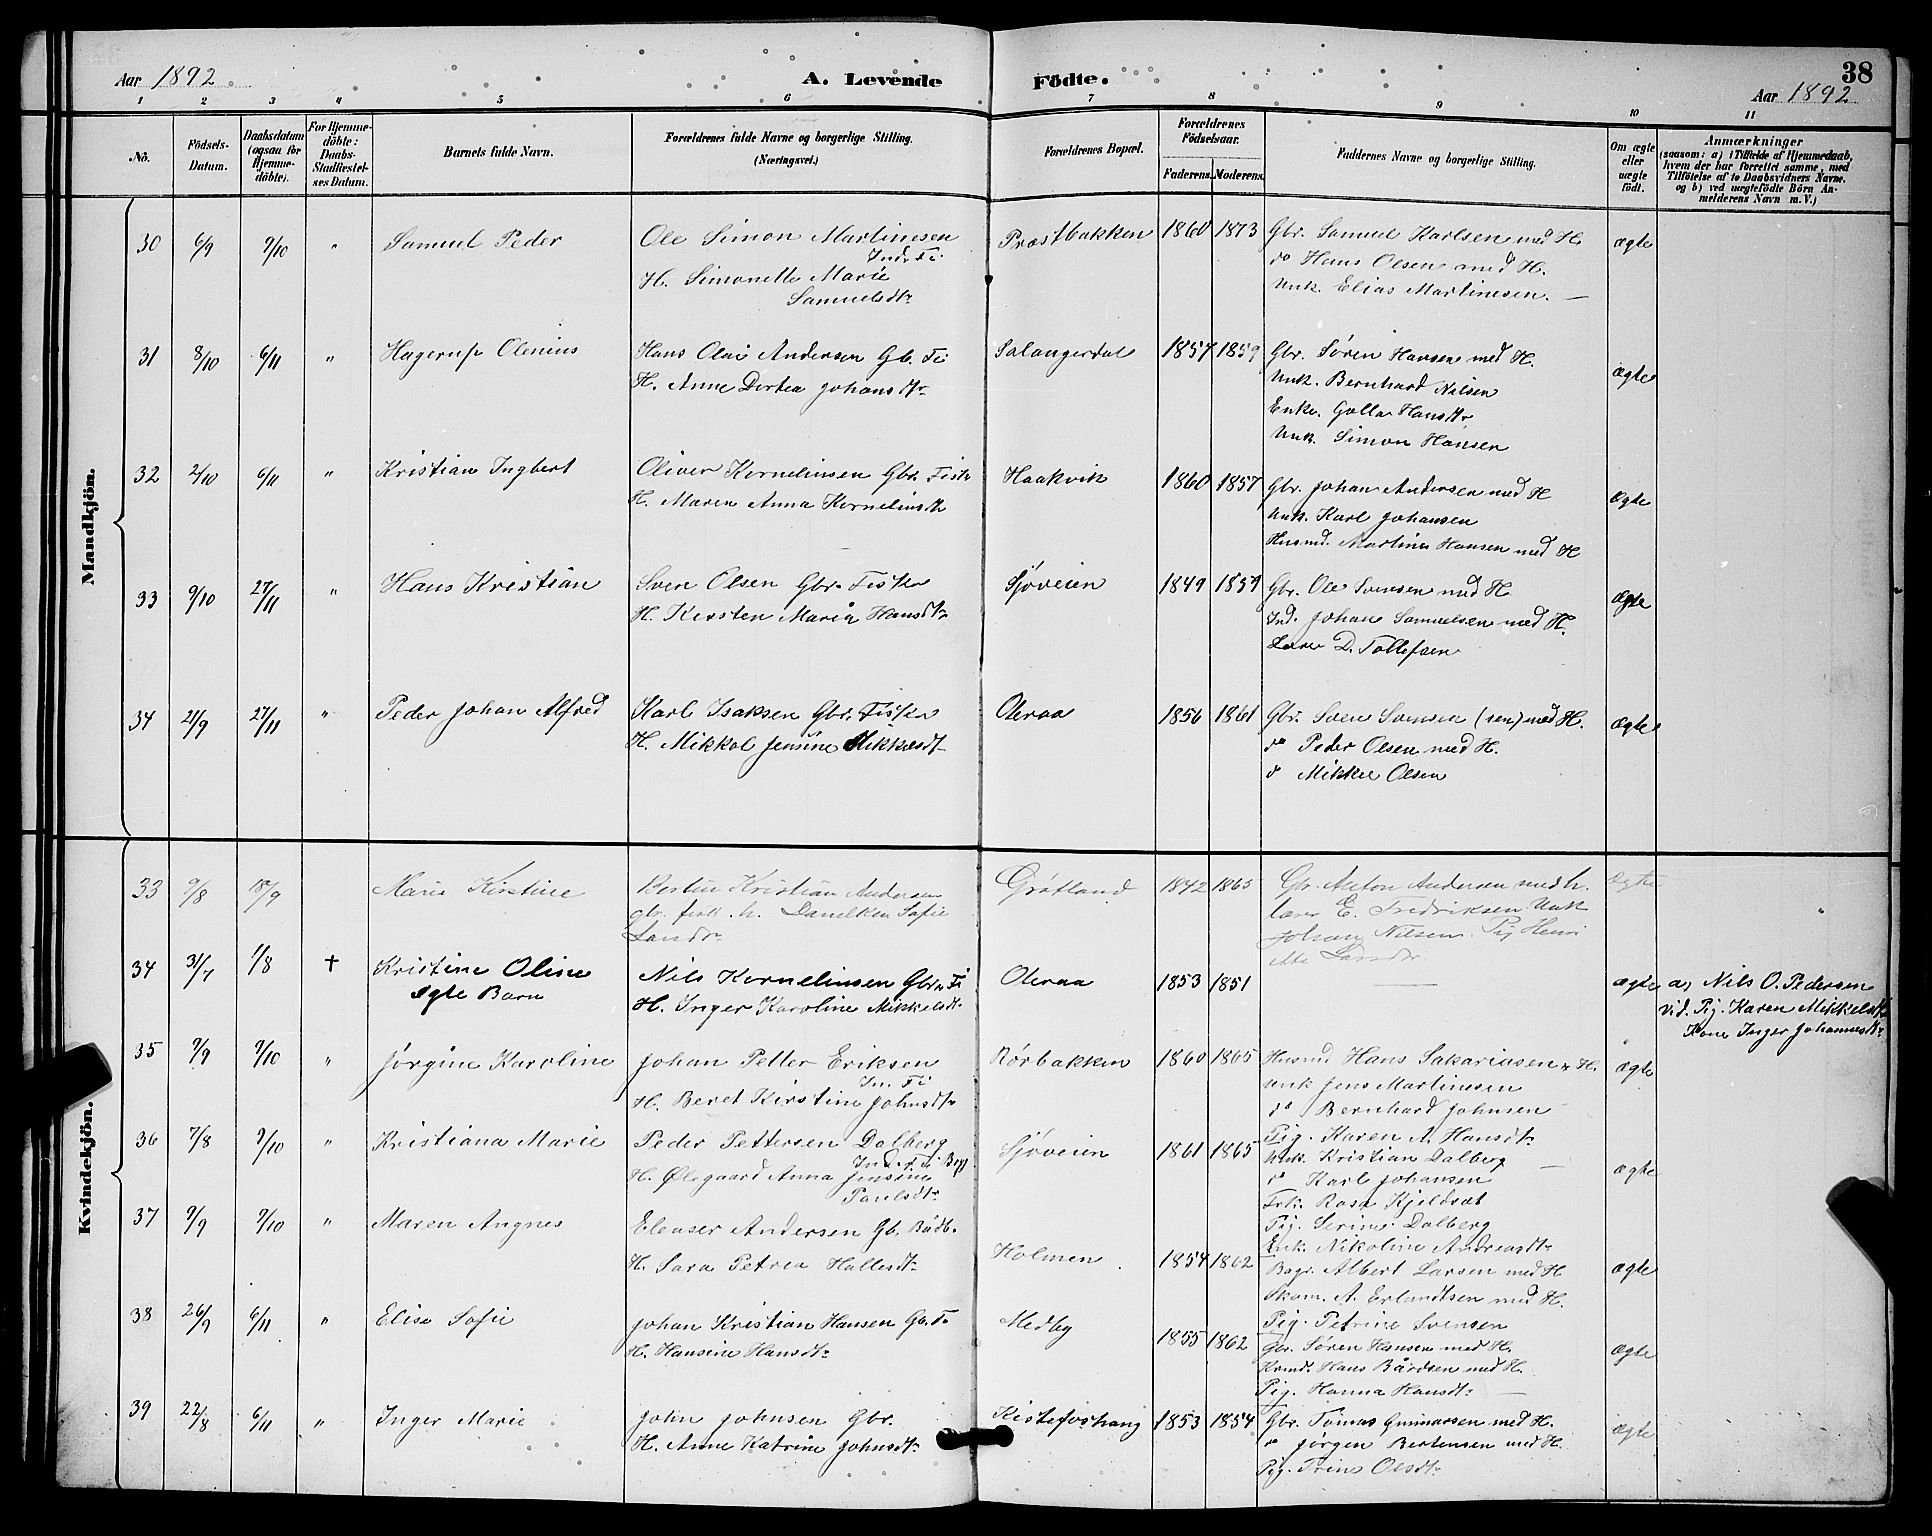 Aar 1892. A. Levende Födte. 38
Aar 1892
1 2 3 4 5 6 7 8 9 10 11
No.
Födsels-Datum.
Daabsdatum (ogsaa for Hjemme-döbte).
For Hjemme-döbte: Daabs-Stadfæstel-ses Datum.
Barnets fulde Navn.
Forældrenes fulde Navne og borgerlige Stilling. (Næringsvei.)
Forældrenes Bopæl.
Forældrenes Födselsaar.
Faderens. Moderens.
Faddernes Navne og borgerlige Stilling.
Om ægte eller uægte födt.
Anmærkninger
(saasom: a) i Tilfælde af Hjemmedaab,
hvem der har forrettet samme, med
Tilföielse af to Daabsvidners Navne.
og b) ved uægtefödte Börn An-
melderens Navn m. V.)
Mandkjön.
30 6/9 9/10 " Samuel Peder Ole Simon Martinesen Præstbakken 1860 1873 Gbr. Samuel Karlsen med H. ægte
Ind. Fi. do Hans Olsen med H.
H. Simonette Marie Unk. Elias Martinesen. —
Samuelsdtr
31 8/10 6/11 " Hagerup Olenius Hans Olai Andersen Gb. Fi Salangerdal 1857 1859 Gbr. Søren Hansen med H. ægte
H. Anne Dortea Johansdtr Unk. Bernhard Nilsen
Enke. Golla Hansdtr
Unk. Simon Hansen
32 2/10 6/11 " Kristian Ingbert Oliver Kornelinsen Gbr. Fisk Haakvik 1860 1857 Gbr. Johan Andersen med H ægte
H. Maren Anna Kornelinsdtr Unk. Karl Johansen
Husmd. Martin Hansen med H
33 9/10 27/11 " Hans Kristian Sven Olsen Gbr. Fisker Sjøveien 1849 1859 Gbr. Ole Svensen med H. ægte
H. Kirsten Maria Hansdtr Ind. Johan Samuelsen med H.
Lærer D. Tollefsen
34 21/9 27/11 " Peder Johan Alfred Karl Isaksen Gbr. Fisker Oleraa 1856 1861 Gbr. Sven Svensen (sen) med H. ægte
H. Mikkol Jensine Mikkelsdt do Peder Olsen med H.
do Mikkel Olsen
Kvindekjön.
33 9/8 18/9 Marie Kirstine Bertin Kristian Andersen Grøtland 1842 1865 Gbr. Anton Andersen med h. Ægte
gbr. fisk. h. Danelken Sofie lærer E. Fredriksen Unk
Larsdtr Johan Nilsen. Pig Henri
34 31/7 1/8 † Kristine Oline Nils Kornelinsen Gbr. Fi Oleraa 1853 1851 — ægte a, Nils O. Pedersen
ægte Barn H. Inger Karoline Mikkelsdtr vid. Pig. Karen Mikkelsdtr
Kone Inger Johannesdtr
35 9/9 9/10 " Jørgine Karoline Johan Petter Eriksen Rørbakken 1860 1865 Husmd Hans Sakariasen m H. ægte
In. Fi Unk Jens Martinesen
H. Beret Kirstine Johnsdtr do Bernhard Johnsen
Pig. Karen A. Hansdtr
36 7/8 9/10 " Kristiana Marie Peder Pettersen Dalberg Sjøveien 1861 1865 Unk. Kristian Dalberg — ægte
Ind. Fi Bygs do Karl Johansen
H. Ølegaard Anna Jensine Frk. Rosa Kjeldsæt
Paulsdtr Pig. Serine Dalberg
37 9/9 9/10 " Maren Angnes Eleaser Andersen Gb. Bådb. Holmen 1854 1862 Enk. Nikoline Andreasdtr ægte
H. Sara Petrea Hallesdtr Bagr. Albert Larsen med H
Skom. A. Erlandtsen med H.
Pig. Petrine Svensen
38 26/9 6/11 " Elise Sofie Johan Kristian Hansen Gb. Fi Medby 1855 1862 Gbr. Søren Hansen med H. ægte
H. Hansine Hansdtr Kvmd. Hans Bårdsen med H.
Pig. Hanna Hansdtr —
39 22/8 6/11 " Inger Marie John Johnsen Gbr. Kistefoshaug 1853 1854 Gbr. Tomas Gunnarsen med H. ægte
H. Anne Katrine Johnsdtr do Jørgen Bertensen med H.
Pig. Trine Olsdtr